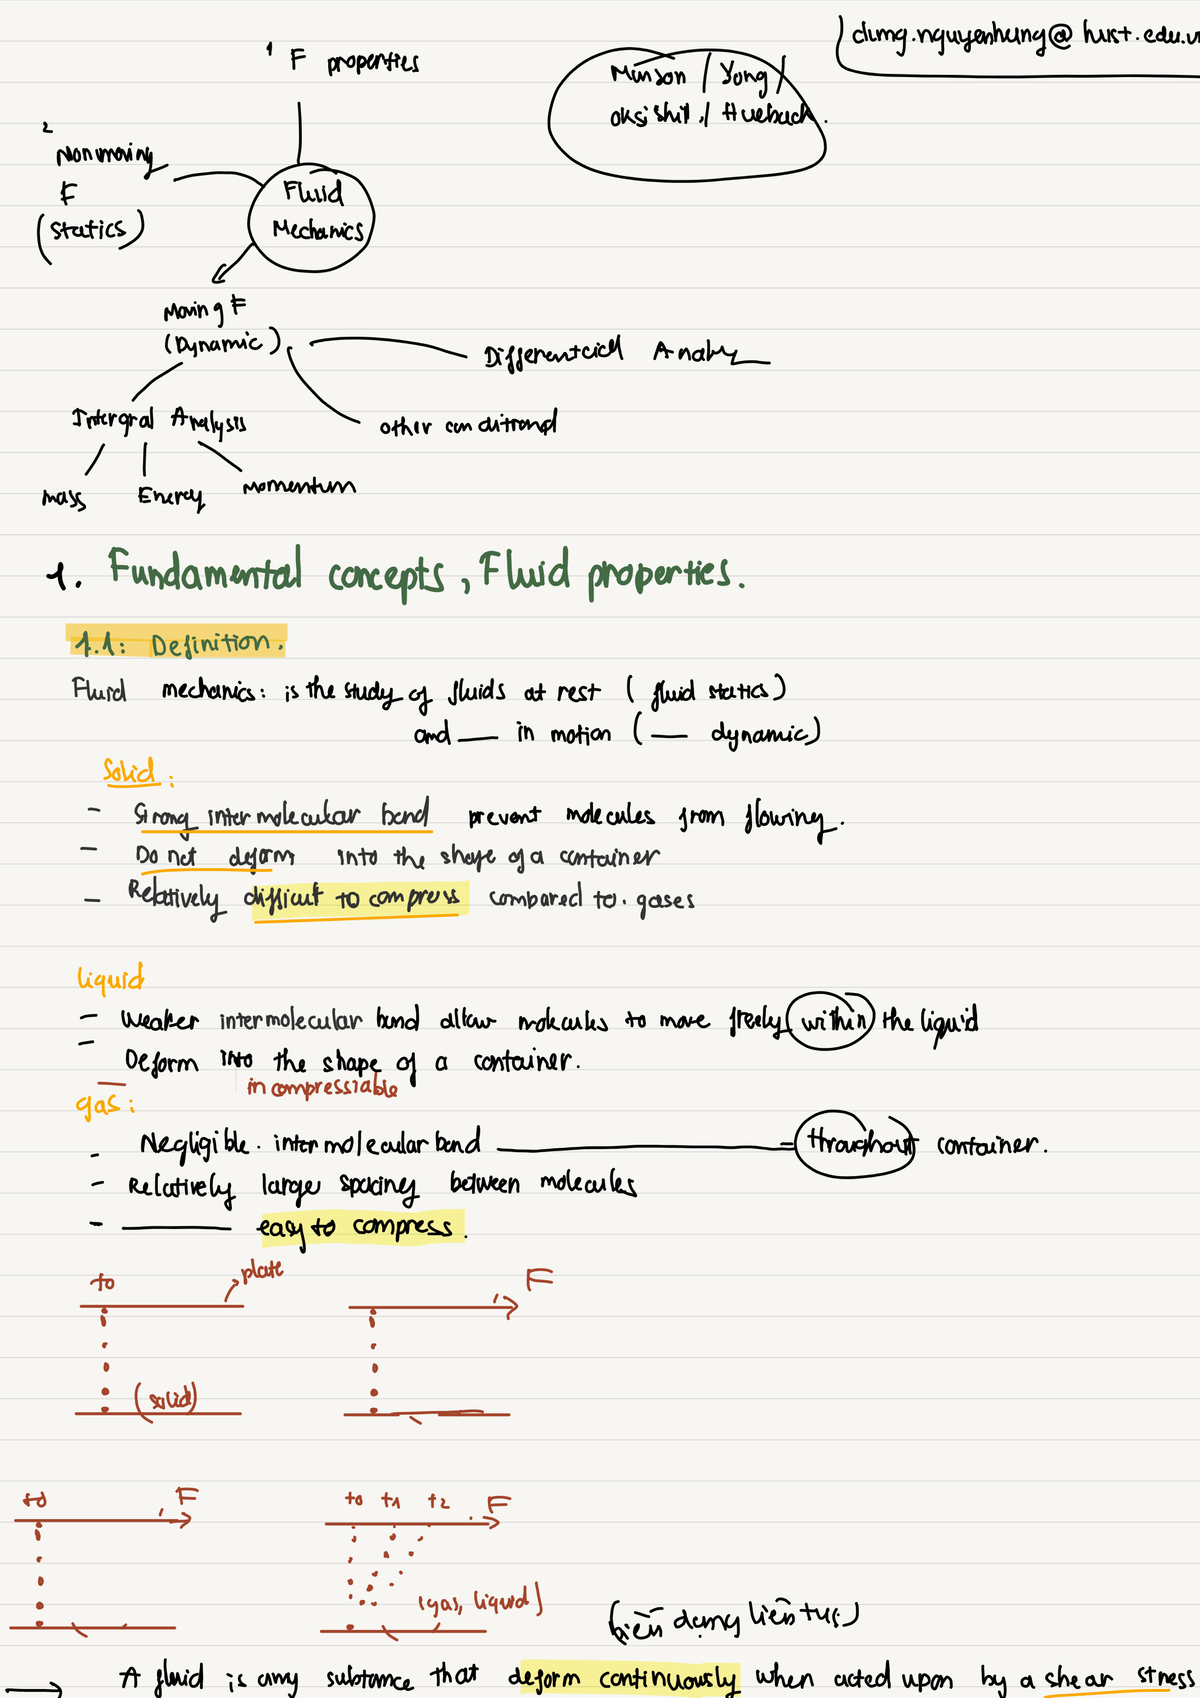 dung.nguyenhung@hust.edu.v
1 F properties
Munson / Yong /
okiishi / Huebsch.
2
Nonmoving
F
(Statics)
Fluid
Mechanics
Moving F
(Dynamic)
Differential Analy
Intergral Analysis
other conditional
mass Energy momentum
1. Fundamental concepts, Fluid properties.
1.1: Definition.
Fluid mechanics: is the study of fluids at rest (fluid statics)
and — in motion (— dynamic)
Solid:
- Strong intermolecular bond prevent molecules from flowing.
- Do not deform into the shape of a container
- Relatively difficut to compress compared to gases
liquid
- Weaker intermolecular bond allow molecules to move freely within the liquid
- Deform into the shape of a container.
incompressiable
gas:
- Negligible intermolecular bond — throughout container.
- Relatively large spacing between molecules
- — easy to compress.
to plate F
(solid)
to F to t1 t2 F
(gas, liquid)
(biến dạng liên tục)
→ A fluid is any substance that deform continuously when acted upon by a shear stress